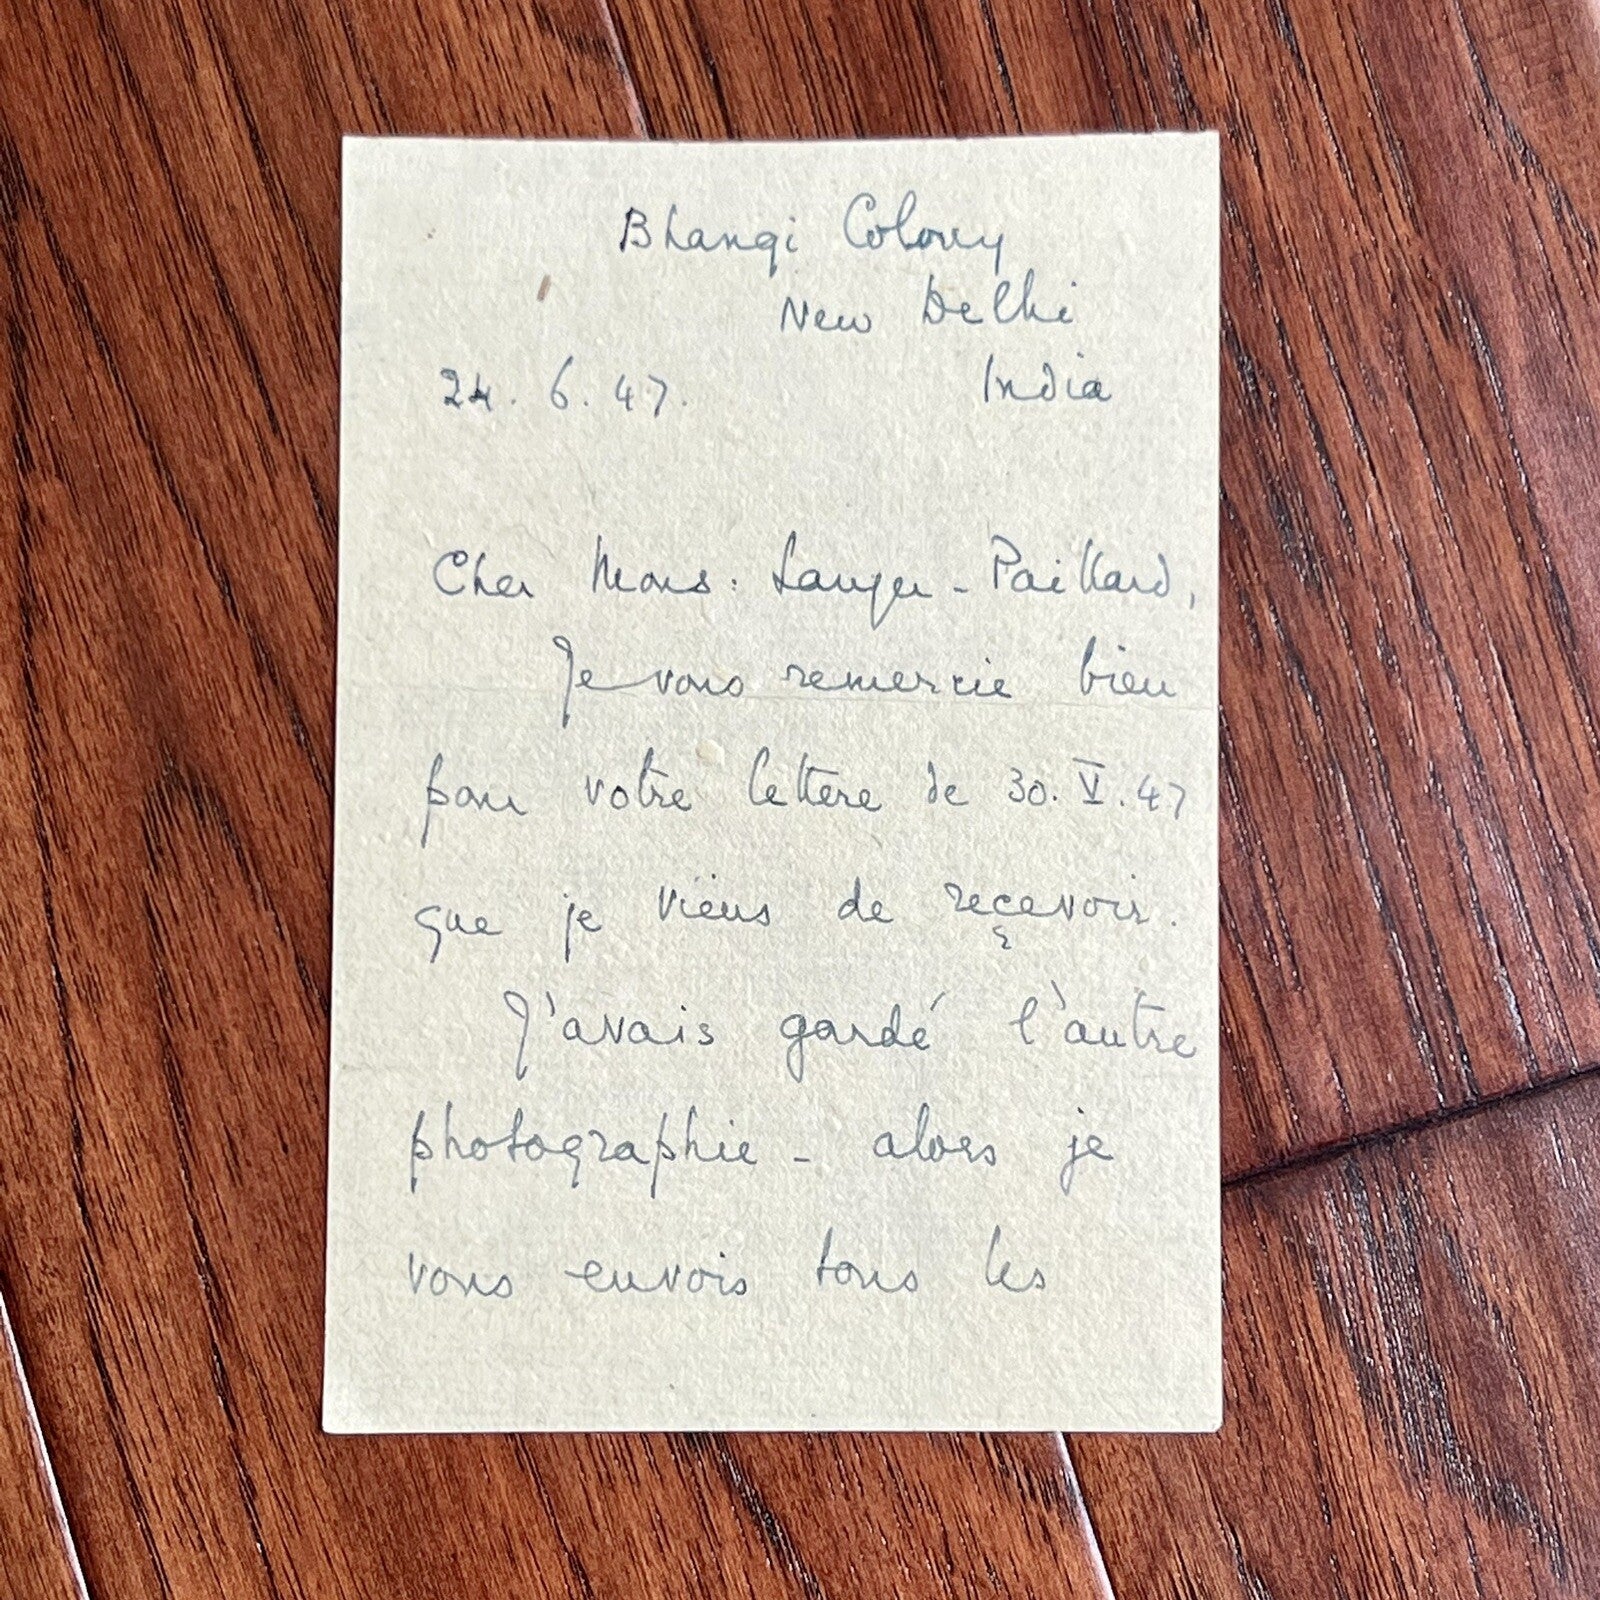 Bhangi Colony
New Delhi
India
24. 6. 47.
Cher Mons: Langer - Paillard,
Je vous remercie bien
pour votre lettere de 30. V. 47
que je viens de reçevoir.
J'avais gardé l'autre
photographie - alors je
vous envois tous les